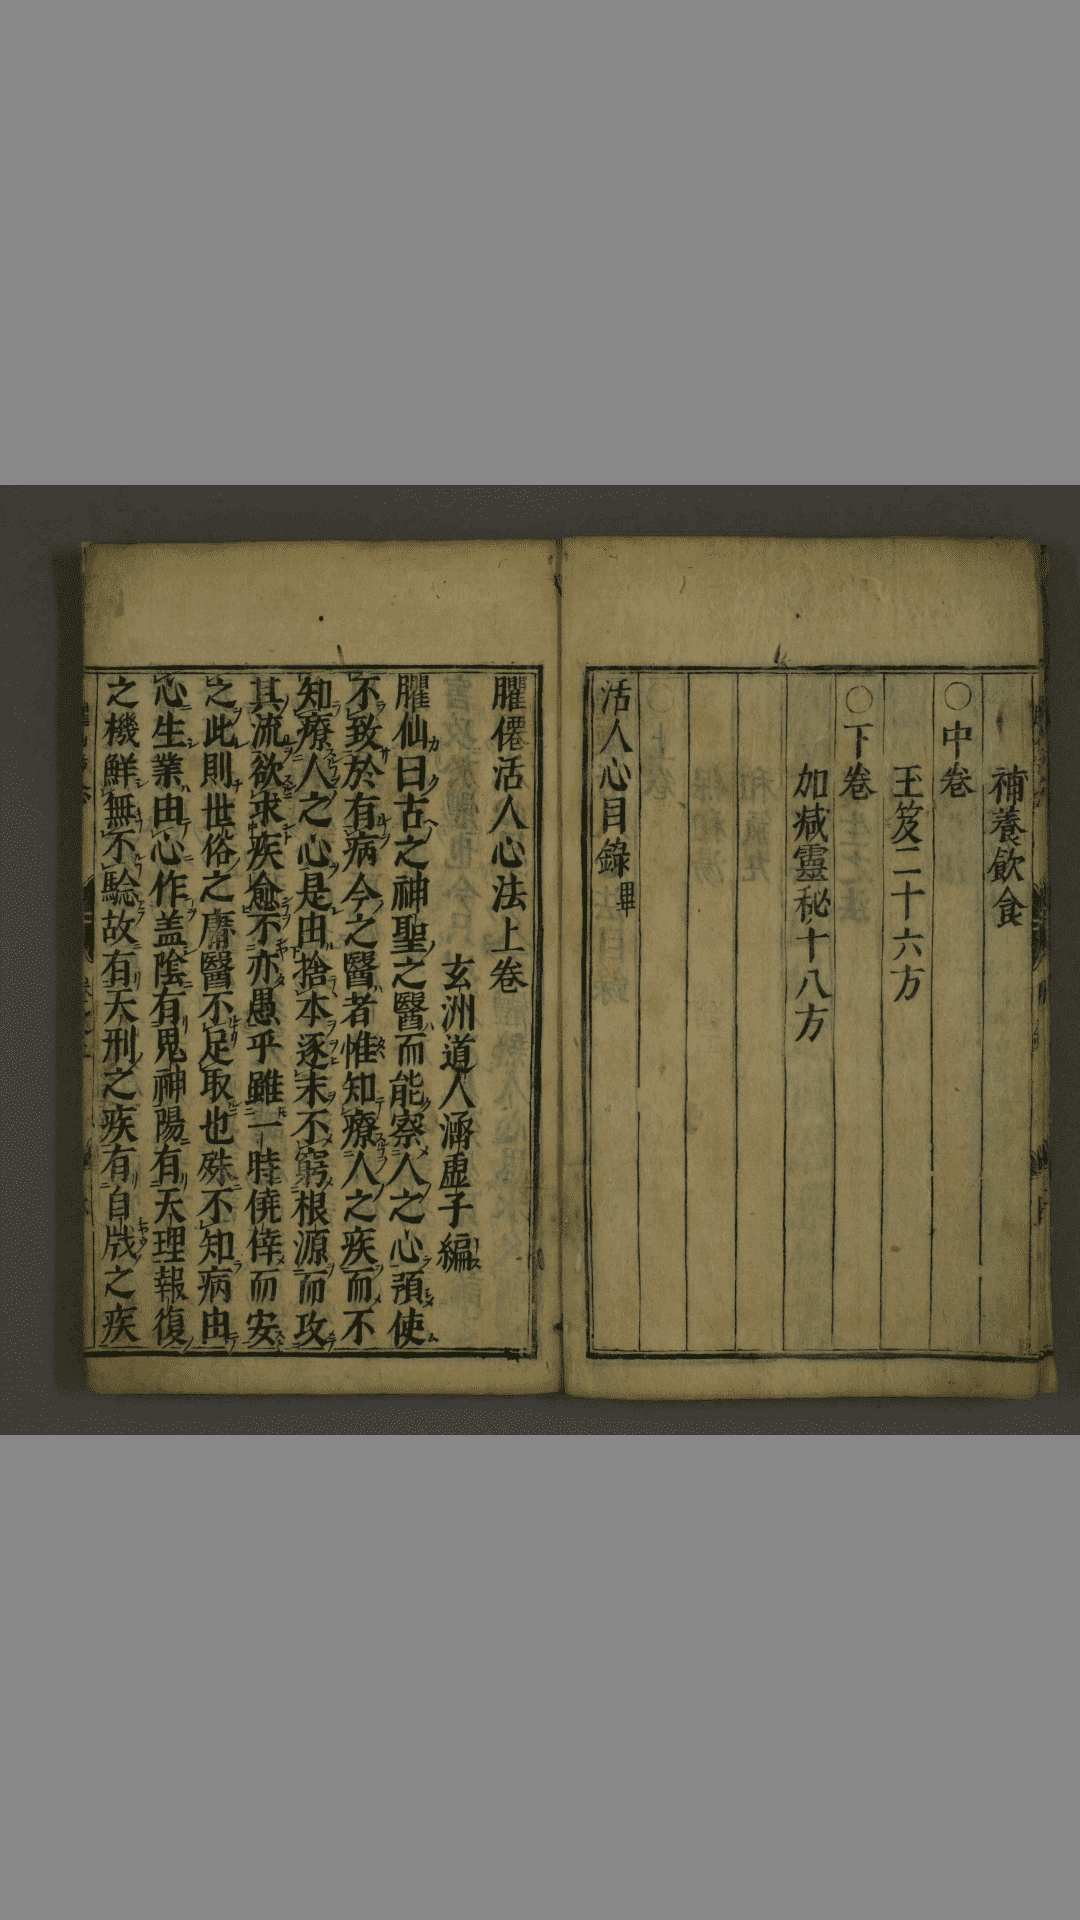 補養飲食
○中卷
玉笈二十六方
○下卷
加减靈秘十八方
活人心目錄畢
臞僊活人心法上卷
玄洲道人涵虚子編
臞仙曰古之神聖之醫而能察人之心預使
不致於有病今之醫者惟知療人之疾而不
知療人之心是由捨本逐末不窮根源而攻
其流欲求疾愈不亦愚乎雖一時僥倖而安
之此則世俗之庸醫不足取也殊不知病由
心生業由心作盖陰有鬼神陽有天理報復
之機鮮無不驗故有天刑之疾有自戕之疾